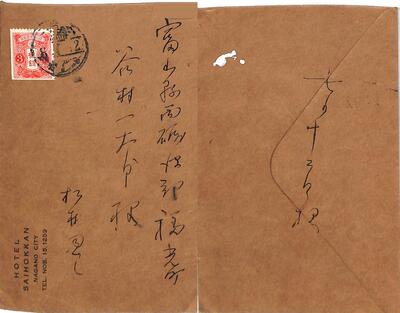 富山縣西礪波郡福光町
谷村一太郎様
HOTEL
SAIHOKKAN
NAGANO CITY
TEL. NOS. 15.1259
七月十二日